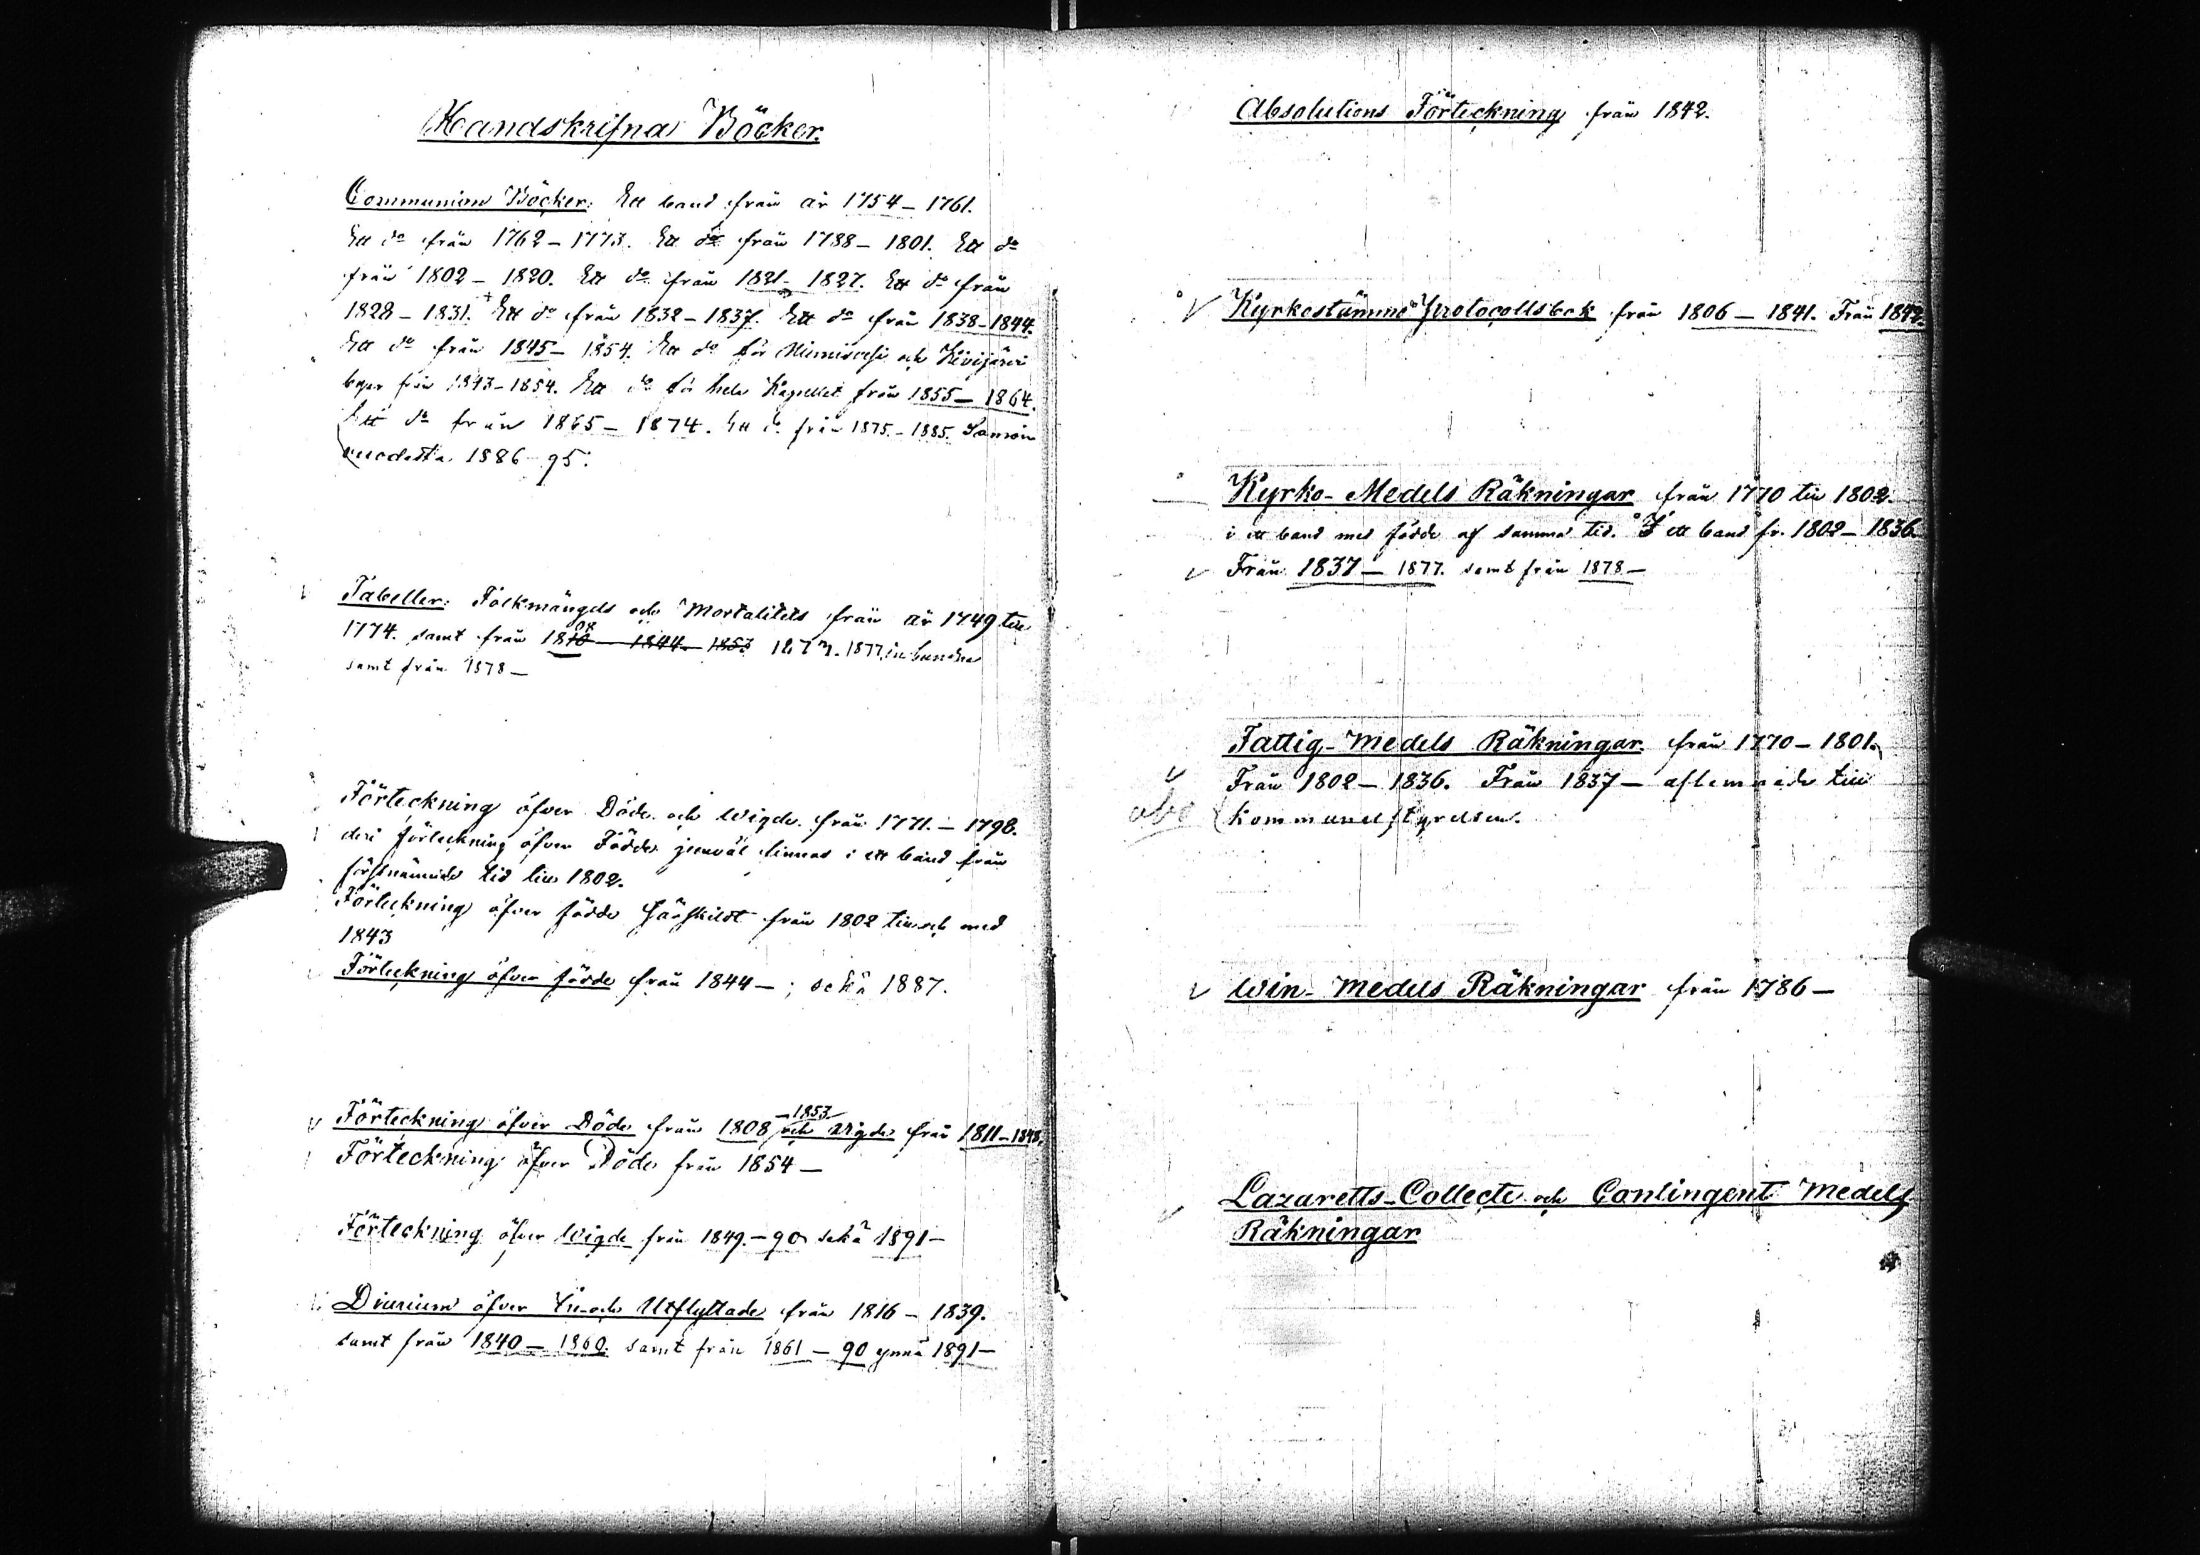 Handskrifna Böcker.
Communion Böcker: Ett band från år 1754 – 1761.
Ett do från 1762 – 1773. Ett do från 1788 – 1801. Ett do
från 1802 – 1820. Ett do från 1821 – 1827. Ett do från
1828 – 1831. + Ett do från 1832 – 1837. Ett do från 1838 – 1844.
Ett do från 1845 – 1854. Ett do för och Kivijärvi
byar från 1843 – 1854. Ett do för hela Kapellet från 1855 – 1864.
Ett do från 1865 – 1874. Ett do från 1875. – 1885. Samoin
vuodesta 1886 – 95.
Tabeller: Folkmängds och Mortalitets från år 1749 till
1774. samt från 1810 08 – 1844 – 1853 1877 inbundna
samt från 1878 –
Förteckning öfver Döde och Wigde från 1771. – 1798.
deri förteckning öfver Födde jemväl finnes i ett band från
förstnämnde tid till 1802.
Förteckning öfver födde särskildt från 1802 till och med
1843
Förteckning öfver födde från 1844 – ; sekä 1887.
Förteckning öfver Döde från 1808 – 1853 och Vigde från 1811 – 1848.
Förteckning öfver Döde från 1854 –
Förteckning öfver Wigde från 1849. – 90 sekä 1891 –
Diarium öfver In- och Utflyttade från 1816 – 1839.
samt från 1840 – 1860. samt från 1861 – 90 ynnä 1891 –
Absolutions Förteckning från 1842.
Kyrkostämme Protocollsbok från 1806 – 1841. Från 1842.
Kyrko- Medels Räkningar från 1770 till 1802.
i ett band med födde af samma tid. I ett band fr. 1802 – 1836.
Från 1837 – 1877. samt från 1878 –
Fattig- Medels Räkningar från 1770 – 1801.
Från 1802 – 1836. Från 1837 – aflemnade till
Kommunalstyrelsen.
Win- Medels Räkningar från 1786 –
Lazaretts- Collecte och Contingent Medels
Räkningar